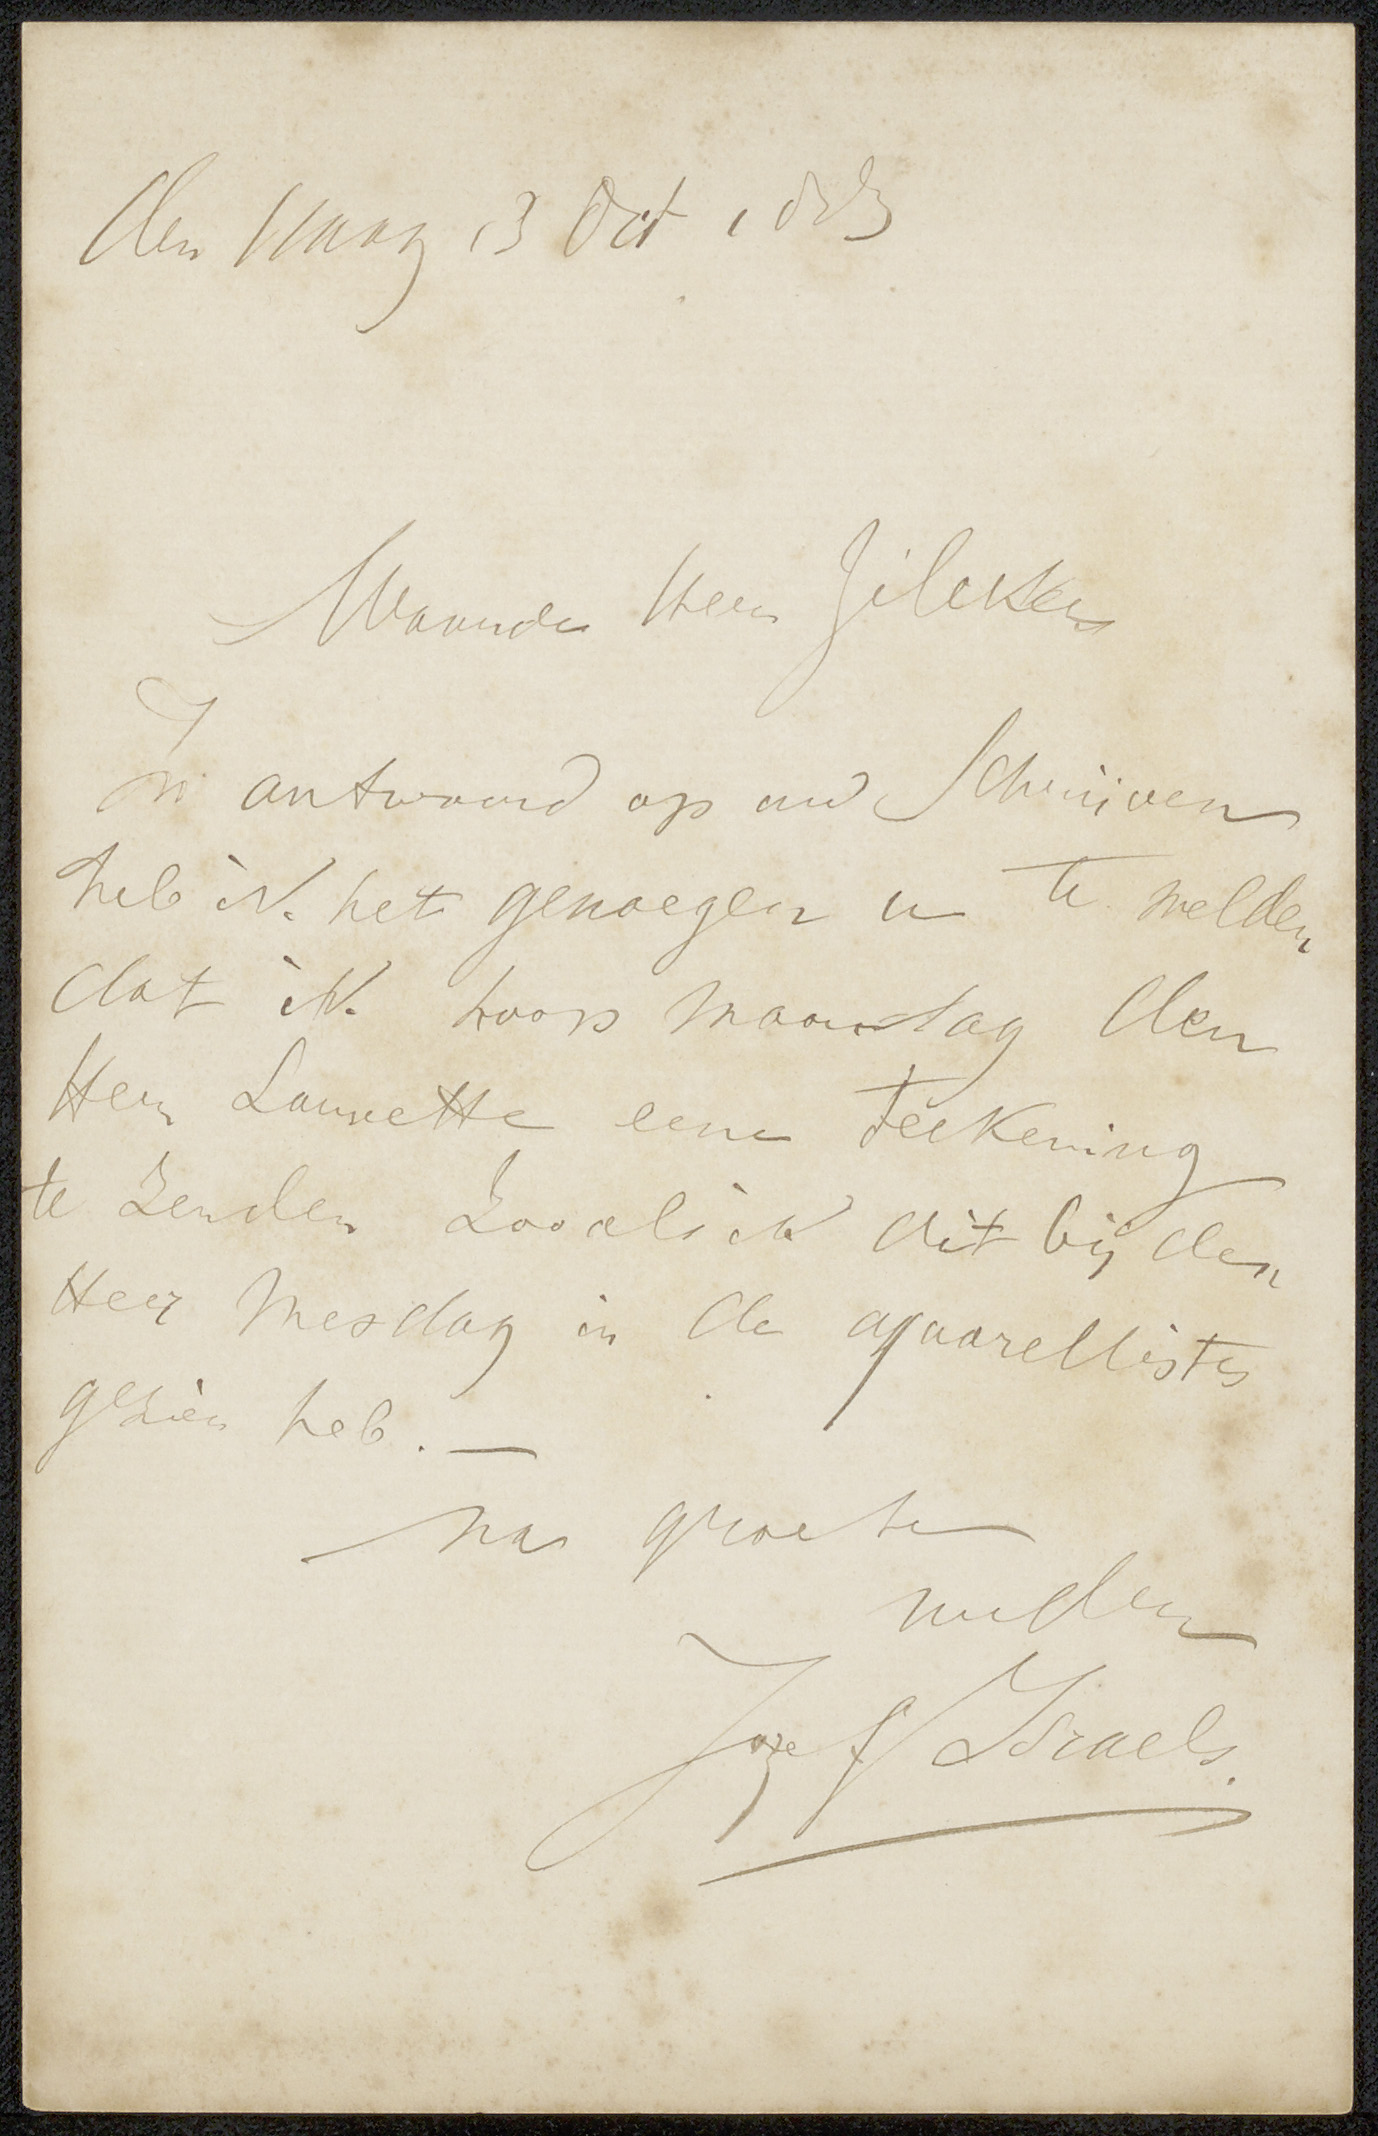 den Haag 13 Oct 1883
Waarde Heer Zilcken
In antwoord op uw Schrijven
heb ik het genoegen u te melden
dat ik hoop maandag den
Heer Lannette eene teekening
te zenden Zooals ik dit bij den
Heer Mesdag in de aquarellistes
gezien heb. —
na groete
Jozef Israels.